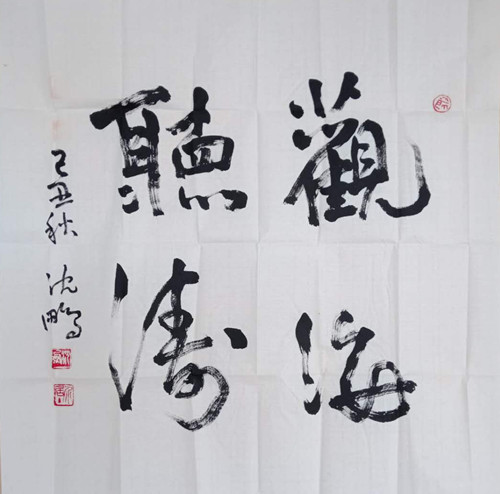 觀海
聽濤
己丑秋 沈鵬